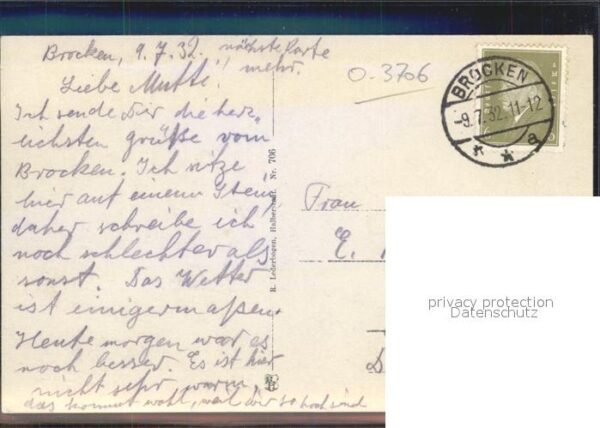 Brocken, 9.7.32. nächste Karte
mehr.
Liebe Mutti!
Ich sende Dir die herz-
lichsten grüße vom
Brocken. Ich sitze
hier auf einem Stein,
daher schreibe ich
noch schlechter als
sonst. Das Wetter
ist einigermaßen.
Heute morgen war es
noch besser. Es ist hier
nicht sehr warm
das kommt wohl, weil wir so hoch sind
O-3706
BROCKEN
-9.7.32.11-12
* * a
R. Lederbogen, Halberstadt. Nr. 706
Frau
E.
privacy protection
Datenschutz